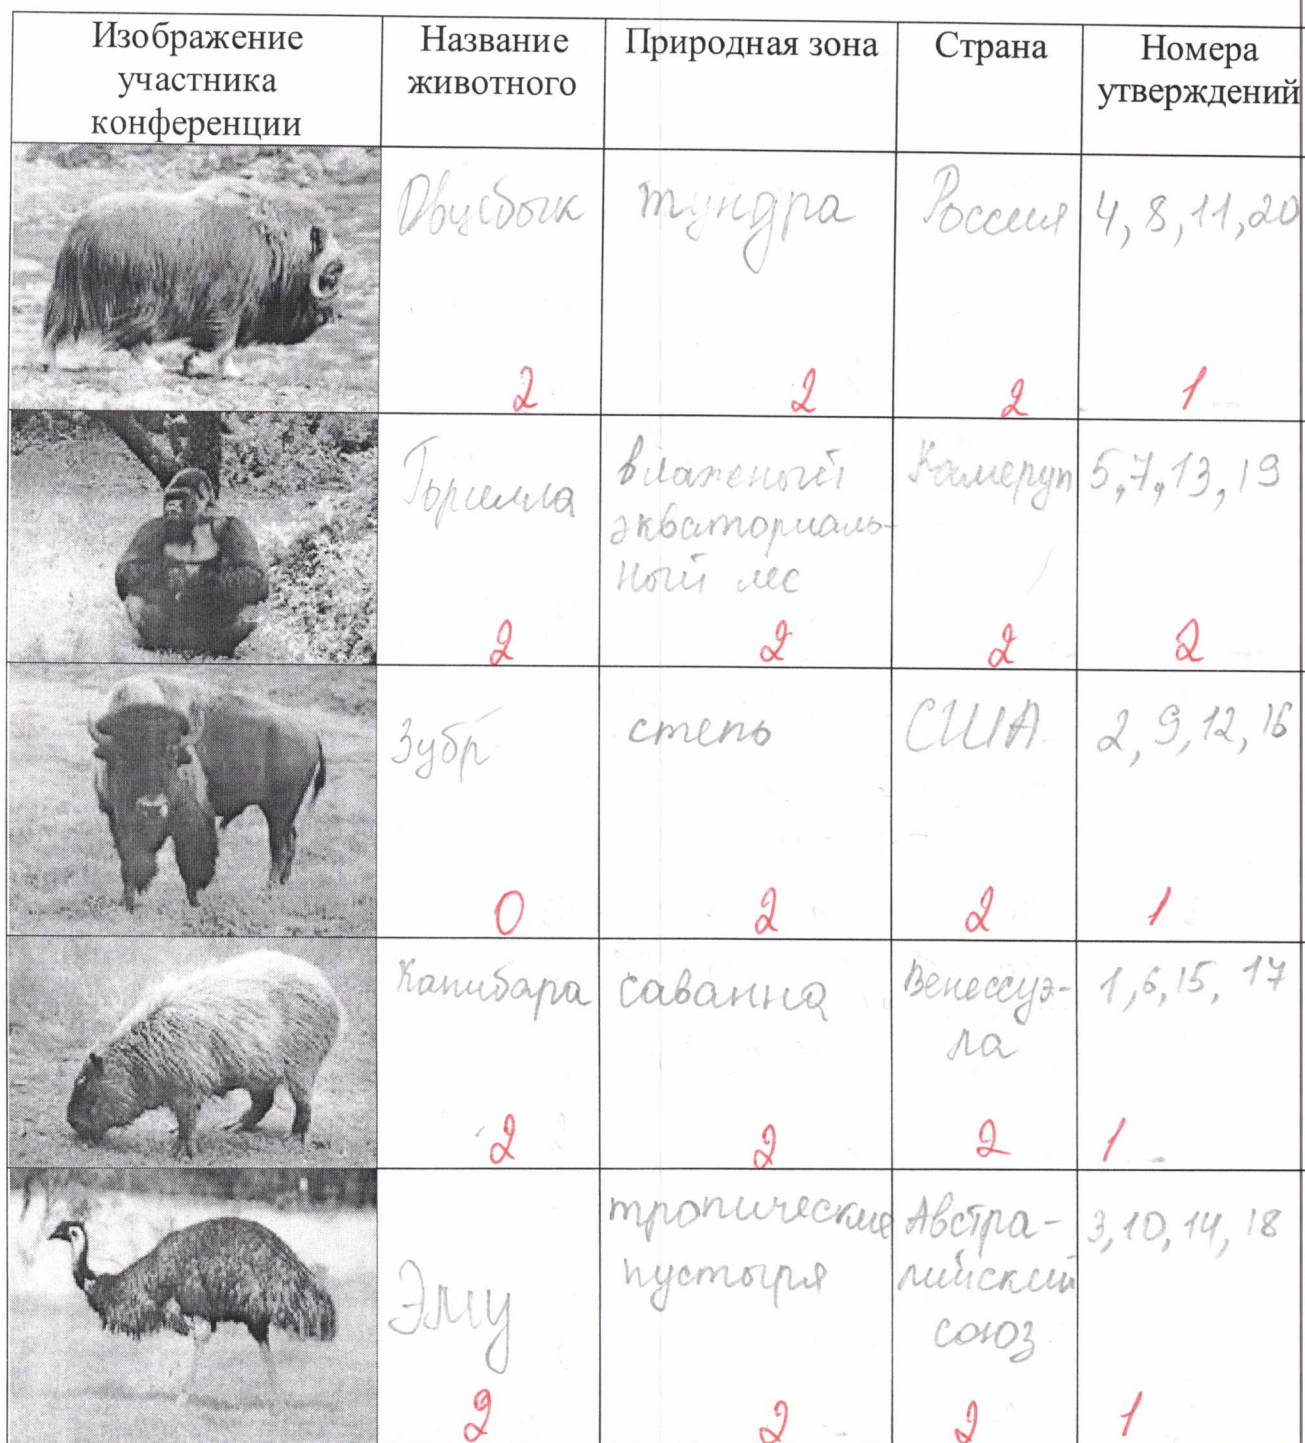 Изображение
участника
конференции
Название
животного
Природная зона
Страна
Номера
утверждений
Овцебык
тундра
Россия
4, 8, 11, 20
2
2
2
1
Горилла
влаженый
экваториаль-
ный лес
Камерун
5, 7, 13, 19
2
2
2
2
Зубр
степь
США
2, 9, 12, 16
0
2
2
1
Капибара
саванна
Венессуэ-
ла
1, 6, 15, 17
2
2
2
1
Эму
тропические
пустыря
Австра-
лийский
союз
3, 10, 14, 18
2
2
2
1